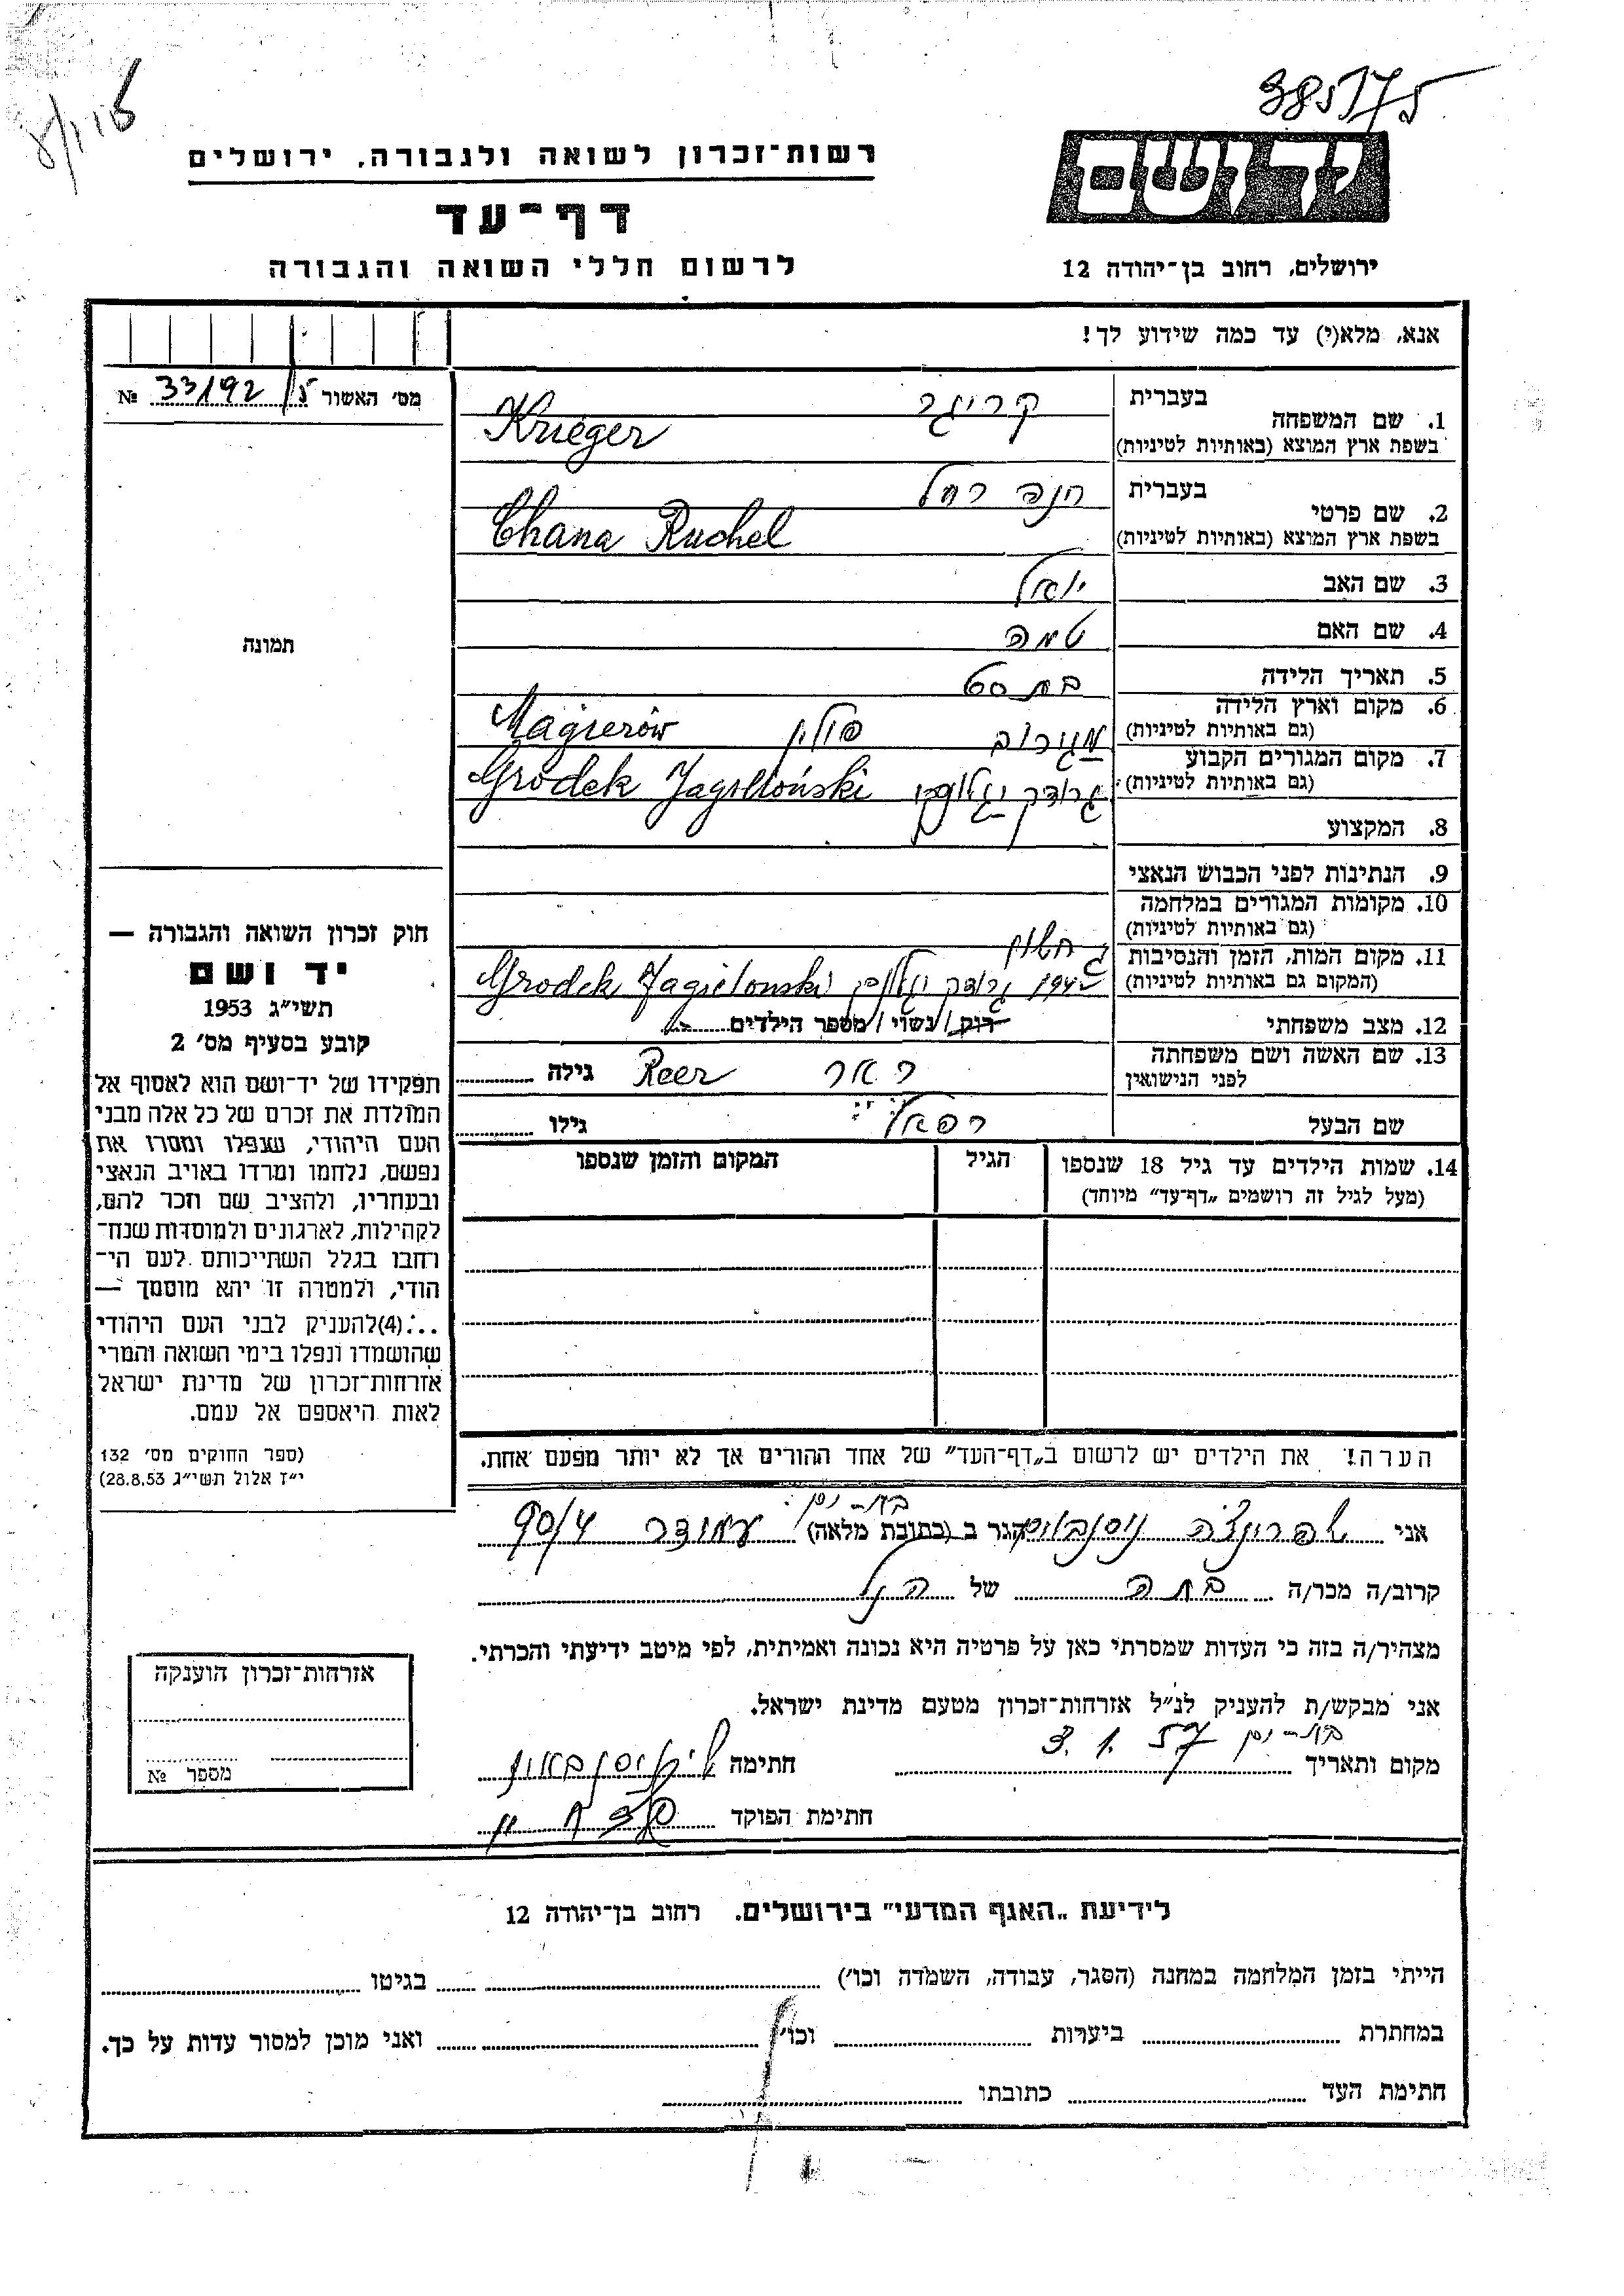 385175
יד ושם
רשות־זכרון לשואה ולגבורה, ירושלים
דף־עד
לרשום חללי השואה והגבורה
ירושלים, רחוב בן־יהודה 12
אנא, מלא(י) עד כמה שידוע לך!
מס׳ האשור 33192 №
1. שם המשפחה בעברית קריגר
בשפת ארץ המוצא (באותיות לטיניות) Krieger
2. שם פרטי בעברית חנה רחל
בשפת ארץ המוצא (באותיות לטיניות) Chana Ruchel
3. שם האב יואל
4. שם האם טמה
5. תאריך הלידה בת 69
6. מקום וארץ הלידה (גם באותיות לטיניות) מגירוב פולין Magierów
7. מקום המגורים הקבוע (גם באותיות לטיניות) גרודק Grodek Jagielloński
8. המקצוע
9. הנתינות לפני הכבוש הנאצי
10. מקומות המגורים במלחמה (גם באותיות לטיניות)
11. מקום המות, הזמן והנסיבות (המקום גם באותיות לטיניות) חשון 1942 גרודק Grodek Jagielonski
12. מצב משפחתי רוק / נשוי / מספר הילדים
13. שם האשה ושם משפחתה לפני הנישואין ראר Reer גילה
שם הבעל רפאל גילו
14. שמות הילדים עד גיל 18 שנספו (מעל לגיל זה רושמים „דף־עד״ מיוחד)
הגיל
המקום והזמן שנספו
הערה! את הילדים יש לרשום ב„דף־העד״ של אחד ההורים אך לא יותר מפעם אחת.
תמונה
חוק זכרון השואה והגבורה —
יד ושם
תשי״ג 1953
קובע בסעיף מס׳ 2
תפקידו של יד־ושם הוא לאסוף אל
המולדת את זכרם של כל אלה מבני
העם היהודי, שנפלו ומסרו את
נפשם, נלחמו ומרדו באויב הנאצי
ובעוזריו, ולהציב שם וזכר להם,
לקהילות, לארגונים ולמוסדות שנח־
רבו בגלל השתייכותם לעם הי־
הודי, ולמטרה זו יהא מוסמך —
...(4) להעניק לבני העם היהודי
שהושמדו ונפלו בימי השואה והמרי
אזרחות־זכרון של מדינת ישראל
לאות היאספם אל עמם.
(ספר החוקים מס׳ 132
י״ז אלול תשי״ג 28.8.53)
אני שפרינצה ניסנבאום הגר ב (כתובת מלאה) בת־ים עמידר 90/4
קרוב/ה מכר/ה בתה של הנ״ל
מצהיר/ה בזה כי העדות שמסרתי כאן על פרטיה היא נכונה ואמיתית, לפי מיטב ידיעתי והכרתי.
אני מבקש/ת להעניק לנ״ל אזרחות־זכרון מטעם מדינת ישראל.
מקום ותאריך בת־ים 3.1.57 חתימה ניסנבאום
חתימת הפוקד
אזרחות־זכרון הוענקה
מספר №
לידיעת „האגף המדעי״ בירושלים. רחוב בן־יהודה 12
הייתי בזמן המלחמה במחנה (הסגר, עבודה, השמדה וכו׳) בגיטו
במחתרת ביערות וכו׳ ואני מוכן למסור עדות על כך.
חתימת העד כתובתו